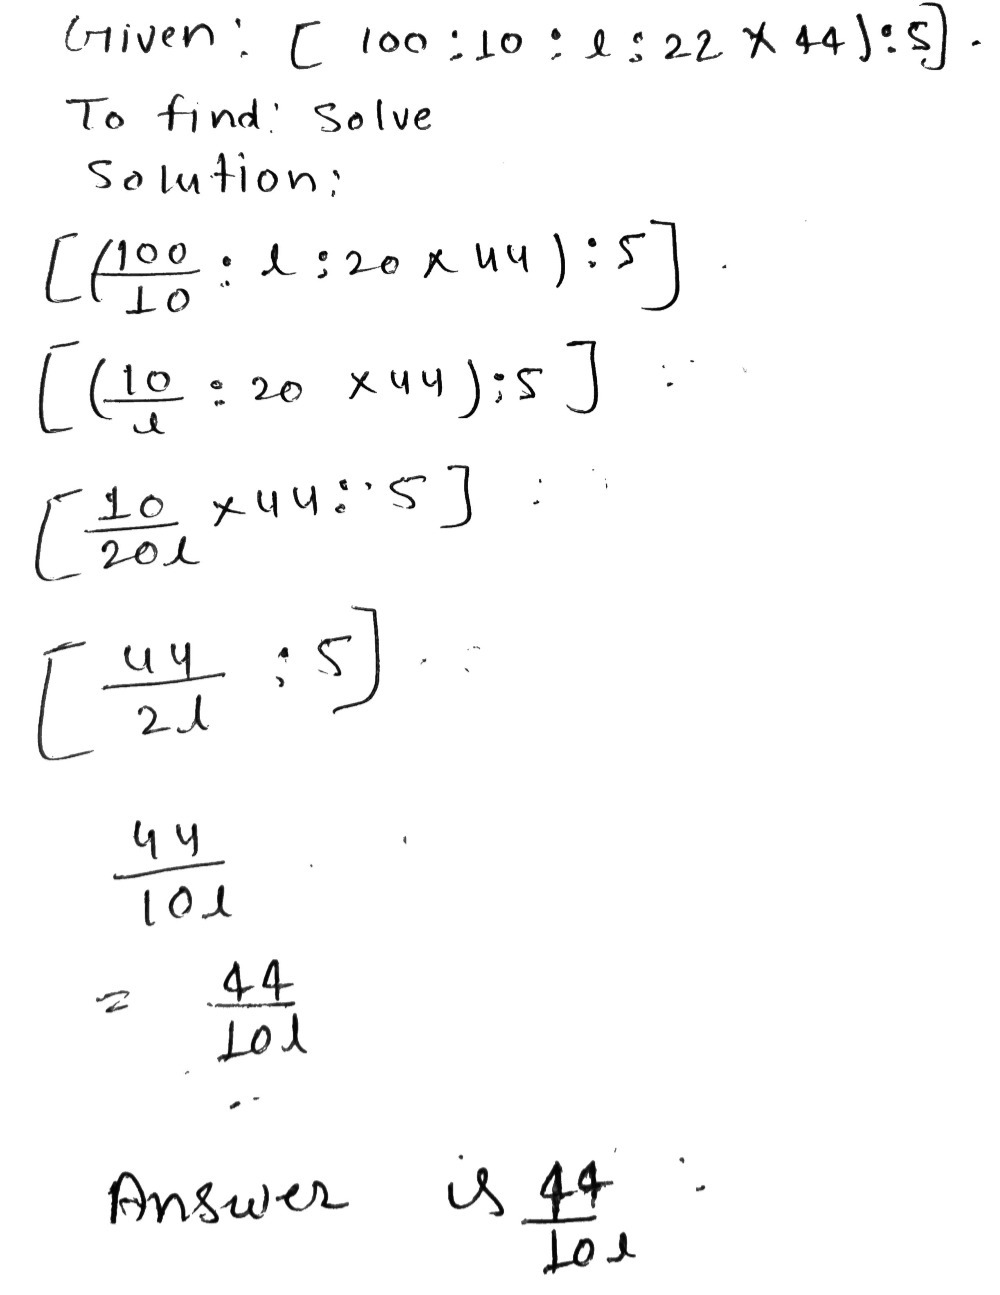 Given: [ 100 : 10 : l : 22 x 44 ) : 5] .
To find: Solve
Solution:
[(100/10 : l : 20 x 44 ) : 5]
[(10/l : 20 x 44 ) ; 5 ]
[ 10/20l x 44 : 5 ]
[ 44/2l ; 5]
44/10l
= 44/10l
Answer is 44/10l